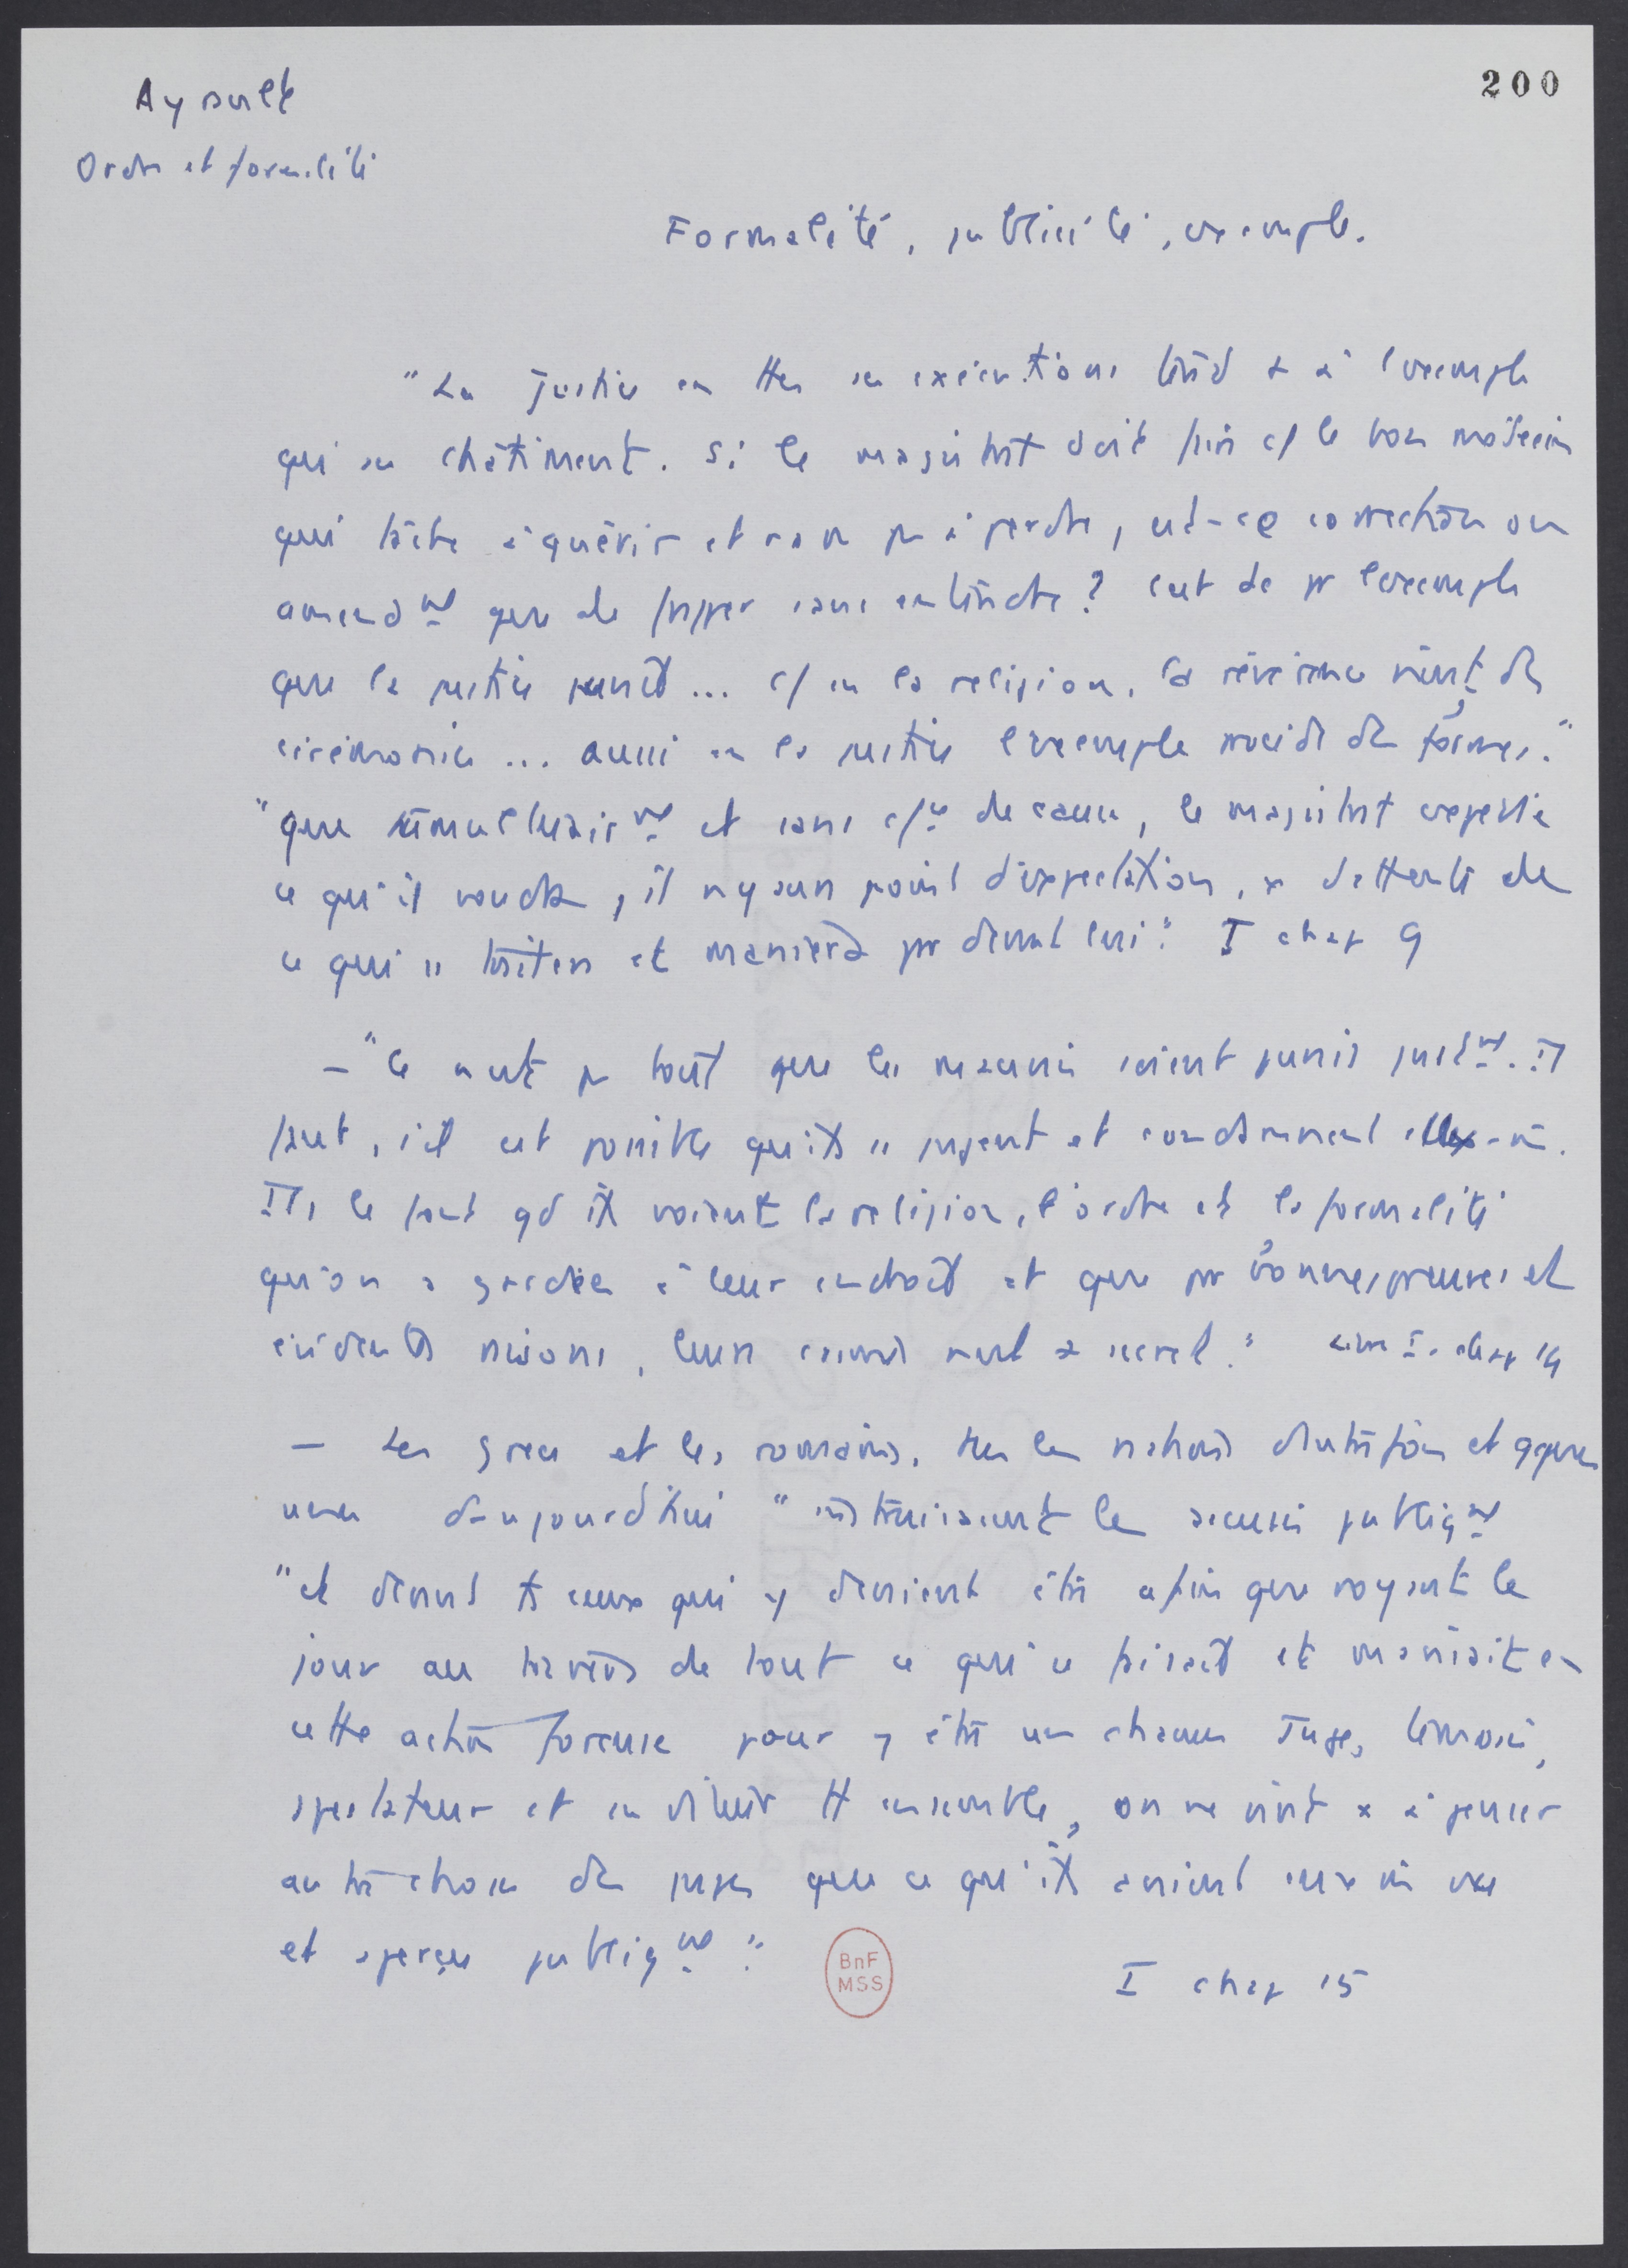 200
Ayrault
Ordre et formalité
Formalité, publicité, exemple.
"La justice en ttes ses exécutions tend + à l'exemple
qu'au châtiment. Si le magistrat doit faire c/ le bon médecin
qui tâche à guérir et non pas à perdre, est-ce correction ou
amendmt que de frapper sans entendre? C'est de pr l'exemple
que la justice punit ... c/ en la religion, la révérence vient des
cérémonies ... aussi en la justice l'exemple procède des formes."
"que tumultuairmt et sans c/ce de cause, le magistrat expédie
ce qu'il voudra, il n'y aura point d'expectation, d'attente de
ce qui se traitera et maniera par devant lui". I chap 9
– "Ce n'est pas tout que les mauvais soient punis justmt. Il
faut, s'il est possible qu'ils se jugent et condamnent eux-m.
Ils le font qd ils voient la religion, l'ordre et la formalité
qu'on a gardées à leur endroit et que par bonnes preuves et
évidentes raisons, leurs crimes n'ont + secret." Livre I. chap 14
– Les Grecs et les romains, ttes les nations d'autrefois et qques
unes d'aujourd'hui "instruisaient les accusés publiqmt
"et devant ts ceux qui y devaient être afin que voyant le
jour au travers de tout ce qui se faisait et maniait en
cette action foreuse pour y être un chacun Juge, témoin,
spectateur et auditeur tt ensemble, on ne vînt à penser
autre chose des juges que ce qu'ils avaient eux m vu
et aperçu publiqmt".
I chap 15
BnF
MSS